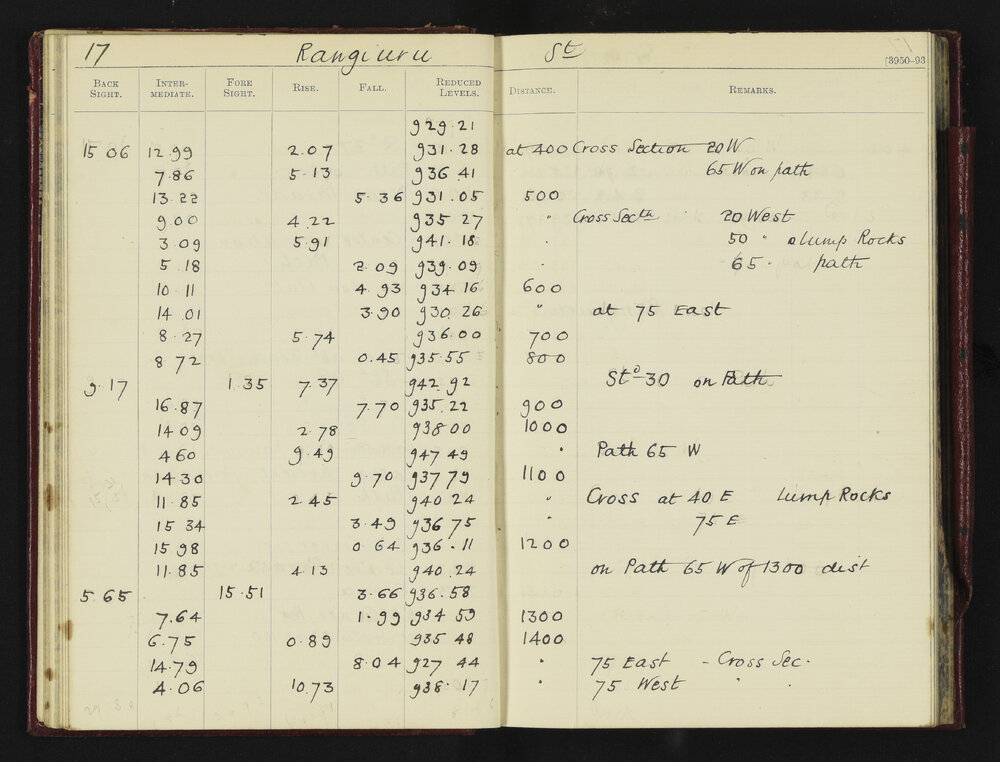 17 Rangiuru St
[3950-93
BACK SIGHT. INTER-MEDIATE. FORE SIGHT. RISE. FALL. REDUCED LEVELS. DISTANCE. REMARKS.
929.21
15 06 12.99 2.07 931.28 at 400 Cross Section 20 W
7.86 5.13 936 41 65 W on path
13.22 5.36 931.05 500
9.00 4.22 935 27 " Cross Secth 20 West
3.09 5.91 941.18 . 50 " lump Rocks
5.18 2.09 939.09 . 65 . path
10.11 4.93 934 16 600
14 01 3.90 930 26 " at 75 East
8.27 5.74 936.00 700
8 72 0.45 935.55 800
9.17 1.35 7.37 942 92 Sto 30 on Path
16.87 7.70 935.22 900
14 09 2.78 938 00 1000
4 60 9.49 947 49 " Path 65 W
14 30 9.70 937 79 1100
11.85 2.45 940 24 " Cross at 40 E lump Rocks
15 34 3.49 936 75 " 75 E
15 98 0 64 936.11 1200
11.85 4.13 940.24 on Path 65 W of 1300 dist
5.65 15.51 3.66 936.58
7.64 1.99 934 59 1300
6.75 0.89 935 48 1400
14.79 8.04 927 44 " 75 East - Cross Sec.
4.06 10.73 938.17 " 75 West " .